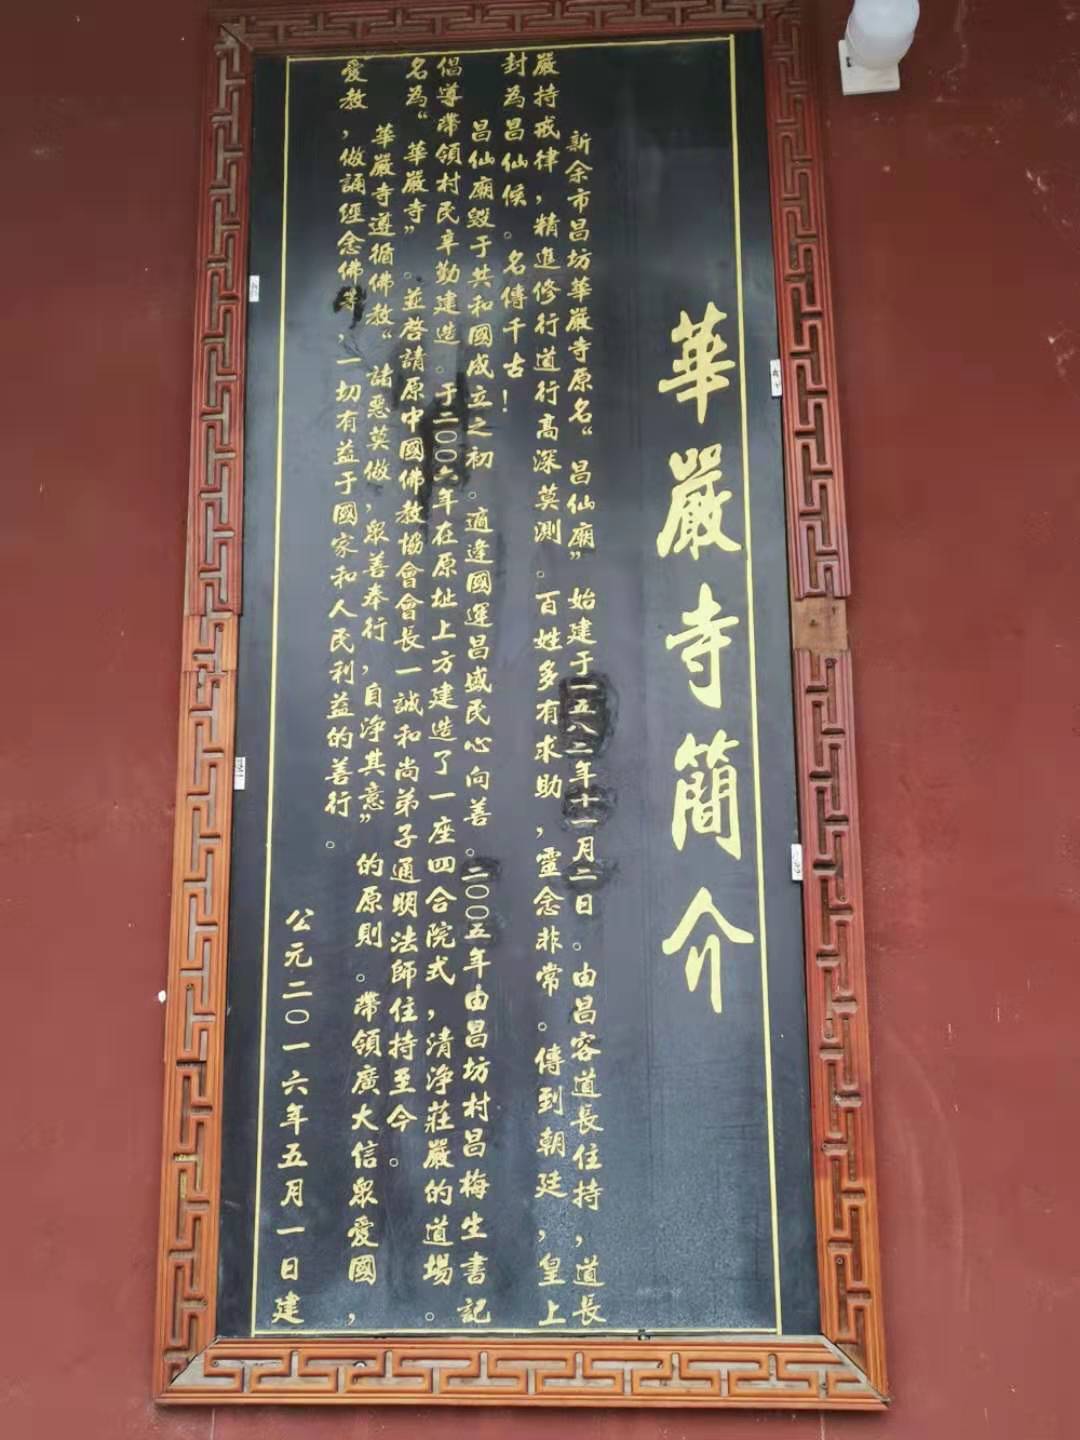 華嚴寺簡介
新余市昌坊華嚴寺原名“昌仙廟”始建于一五八二年十一月二日。由昌容道長住持，道長
嚴持戒律，精進修行道行高深莫測。百姓多有求助，靈念非常。傳到朝廷，皇上
封為昌仙侯。名傳千古！
昌仙廟毀于共和國成立之初。適逢國運昌盛民心向善。二〇〇五年由昌坊村昌梅生書記
倡導帶領村民辛勤建造。于二〇〇六年在原址上方建造了一座四合院式，清淨莊嚴的道場。
名為“華嚴寺”。並啓請原中國佛教協會會長一誠和尚弟子通明法師住持至今。
華嚴寺遵循佛教“諸惡莫做，衆善奉行，自淨其意”的原則。帶領廣大信衆愛國，
愛教，做誦經念佛等，一切有益于國家和人民利益的善行。
公元二〇一六年五月一日建